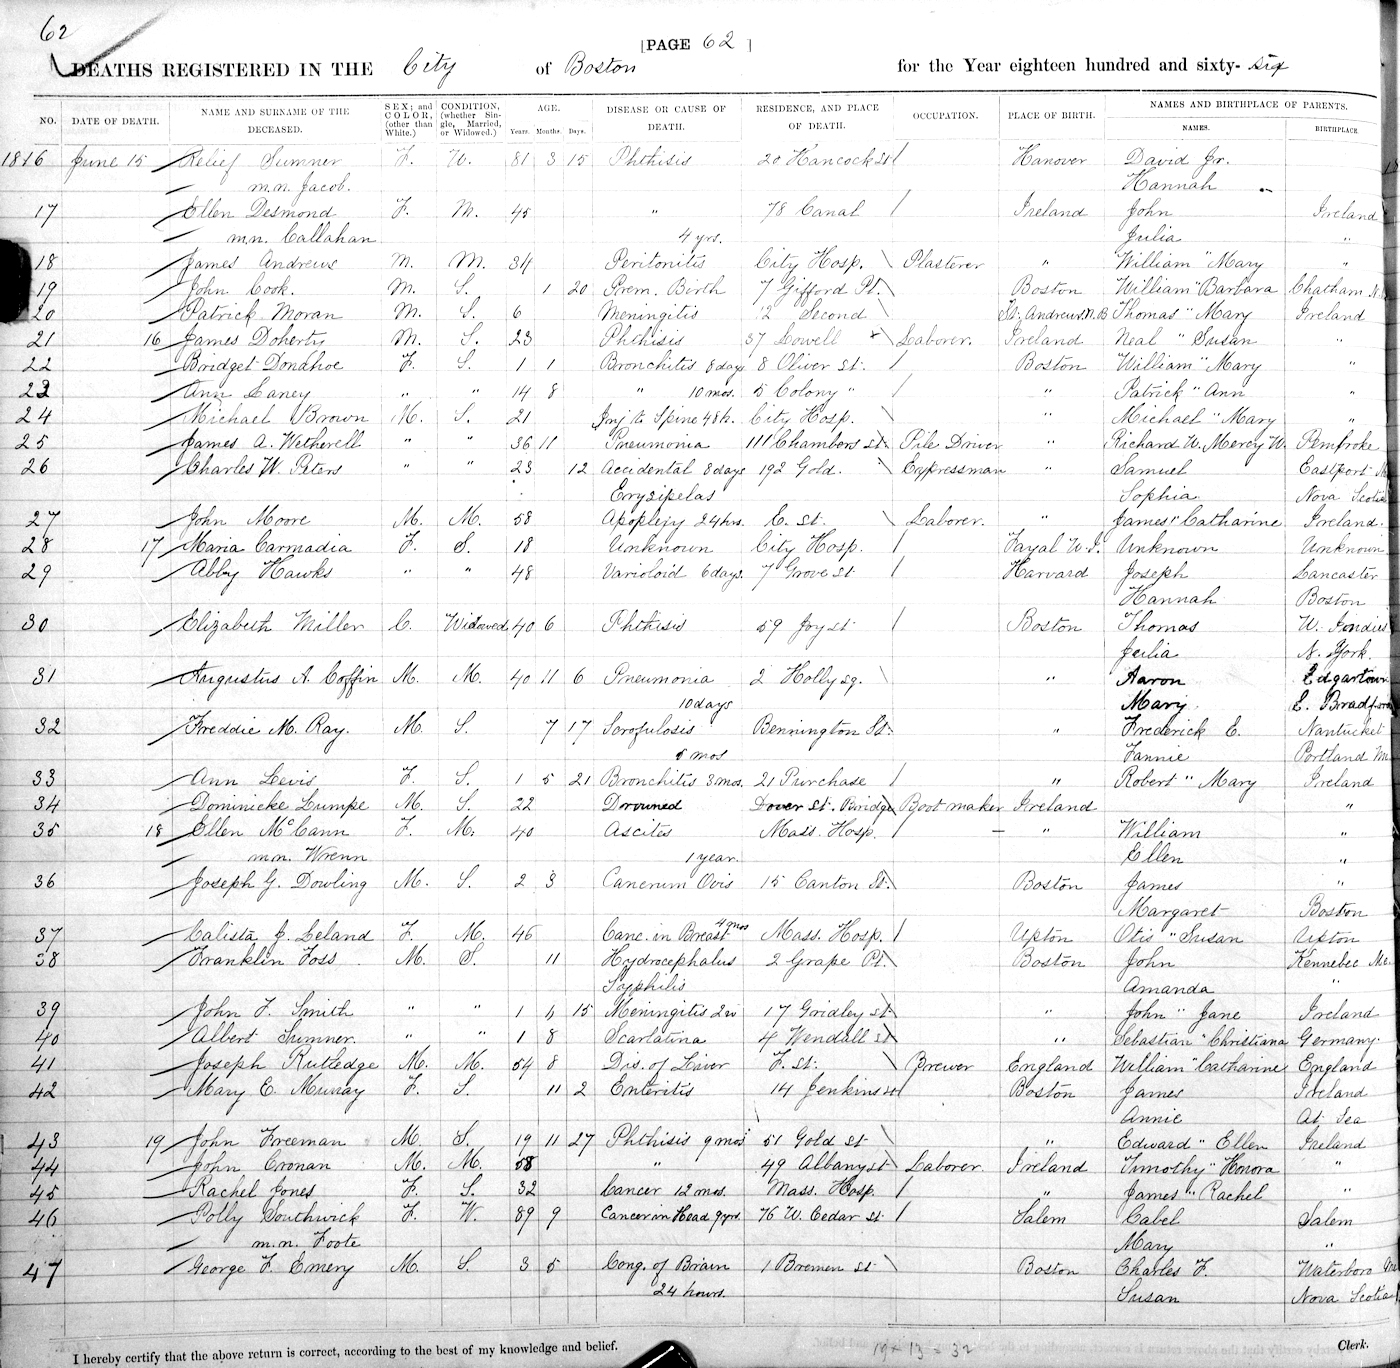 62
[PAGE 62 ]
DEATHS REGISTERED IN THE City of Boston for the Year eighteen hundred and sixty- six
NO. DATE OF DEATH. NAME AND SURNAME OF THE DECEASED. SEX; and COLOR, (other than White.) CONDITION, (whether Single, Married, or Widowed.) AGE. Years. Months. Days. DISEASE OR CAUSE OF DEATH. RESIDENCE, AND PLACE OF DEATH. OCCUPATION. PLACE OF BIRTH. NAMES AND BIRTHPLACE OF PARENTS. NAMES. BIRTHPLACE.
1816 June 15 Relief Sumner F. W. 81 3 15 Phthisis 20 Hancock St Hanover David Jr.
m.n. Jacob. Hannah
17 Ellen Desmond F. M. 45 " 78 Canal Ireland John Ireland
m.n. Callahan 4 yrs. Julia "
18 James Andrews M. M. 34 Peritonitis City Hosp. Plasterer " William " Mary "
19 John Cook. M. S. 1 20 Prem. Birth 7 Gifford Pl. Boston William " Barbara Chatham N.
20 Patrick Moran M. S. 6 Meningitis 12 Second St. Andrews N.B Thomas " Mary Ireland
21 16 James Doherty M. S. 23 Phthisis 37 Lowell Laborer. Ireland Neal " Susan "
22 Bridget Donahoe F. S. 1 1 Bronchitis 8 days 8 Oliver St. Boston William " Mary "
23 Ann Laney " " 14 8 " 10 mos. 5 Colony " " Patrick " Ann "
24 Michael Brown M. S. 21 Inj to Spine 48 h. City Hosp. " Michael " Mary "
25 James A. Wetherell " " 36 11 Pneumonia 111 Chambers St. Pile Driver " Richard W. Mercy W. Pembroke
26 Charles W. Peters " " 23 12 Accidental 8 days 192 Gold. Expressman " Samuel Eastport M
Erysipelas Sophia Nova Scotia
27 John Moore M. M. 58 Apoplexy 24 hrs. E. St. Laborer. " James " Catharine Ireland.
28 17 Maria Carmadia F. S. 18 Unknown City Hosp. Fayal W.I. Unknown Unknown
29 Abby Hawks " " 48 Varioloid 6 days. 7 Grove St Harvard Joseph Lancaster
Hannah Boston
30 Elizabeth Miller C. Widowed 40 6 Phthisis 59 Joy st Boston Thomas W. Indies
Julia N. York.
31 Augustus A. Coffin M. M. 40 11 6 Pneumonia 2 Holly sq. " Aaron Edgartown
10 days Mary. E. Bradford
32 Freddie M. Ray. M. S. 7 17 Scrofulosis Bennington St. " Frederick E. Nantucket
6 mos Fannie Portland Me
33 Ann Levis F. S. 1 5 21 Bronchitis 3 mos. 21 Purchase " Robert " Mary Ireland
34 Dominicke Lumpe M. S. 22 Drowned Dover St. Bridge Boot maker Ireland "
35 18 Ellen McCann F. M. 40 Ascites Mass. Hosp. — " William "
m.n. Wrenn 1 year. Ellen "
36 Joseph G. Dowling M. S. 2 3 Cancrum Oris 15 Canton St. Boston James "
Margaret Boston
37 Calista J. Leland F. M. 46 Canc. in Breast 4 mos Mass. Hosp. Upton Otis " Susan Upton
38 Franklin Foss M. S. 11 Hydrocephalus 2 Grape Pl. Boston John Kennebec Me.
Syphilis Amanda "
39 John F. Smith " " 1 4 15 Meningitis 2 w 17 Gridley st " John " Jane Ireland
40 Albert Sumner " " 1 8 Scarlatina 4 Wendall St " Sebastian " Christiana Germany.
41 Joseph Rutledge M. M. 54 8 Dis. of Liver F. St. Brewer England William " Catharine England
42 Mary E. Murray F. S. 11 2 Enteritis 14 Jenkins st Boston James Ireland
Annie At Sea
43 19 John Freeman M. S. 19 11 27 Phthisis 9 mos 51 Gold St " Edward " Ellen Ireland
44 John Cronan M. M. 58 " 49 Albany st Laborer. Ireland Timothy " Honora "
45 Rachel Jones F. S. 32 Cancer 12 mos. Mass. Hosp. " James " Rachel "
46 Polly Southwick F. W. 89 9 Cancer in Head 9 yrs. 76 W. Cedar St Salem Cabel Salem
m.n. Foote Mary "
47 George F. Emery M. S. 3 5 Cong. of Brain 1 Bremen St Boston Charles F. Waterboro Me
24 hours. Susan Nova Scotia
I hereby certify that the above return is correct, according to the best of my knowledge and belief. 19 + 13 = 32 Clerk.